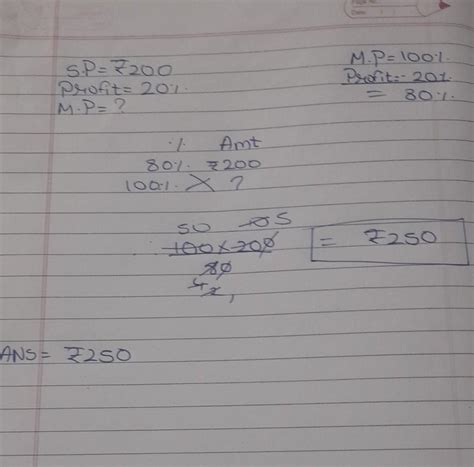 S.P = ₹200
Profit = 20%.
M.P = ?
M.P = 100%.
Profit = - 20%
= 80%.
% Amt
80%. ₹200
100%. ?
50 5
100 × 200
80
4
= ₹250
ANS = ₹250